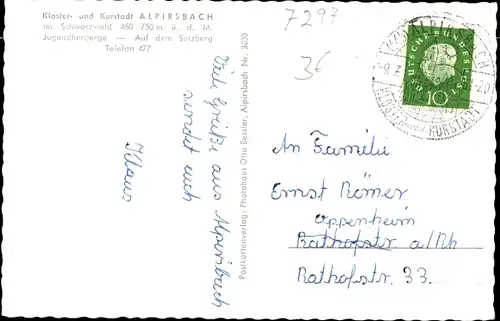 Kloster- und Kurstadt ALPIRSBACH
im Schwarzwald 450-750 m ü. d. M.
Jugendherberge — Auf dem Sulzberg
Telefon 477
7297
36
Viele Grüße aus Alpirsbach
sendet euch
Klaus
Postkartenverlag: Photohaus Otto Bessler, Alpirsbach Nr. 3030
DEUTSCHE BUNDESPOST
10
KLOSTER- KURSTADT
An Familie
Ernst Römer
Oppenheim
Rathofstr. a/Rh
Rathofstr. 33.